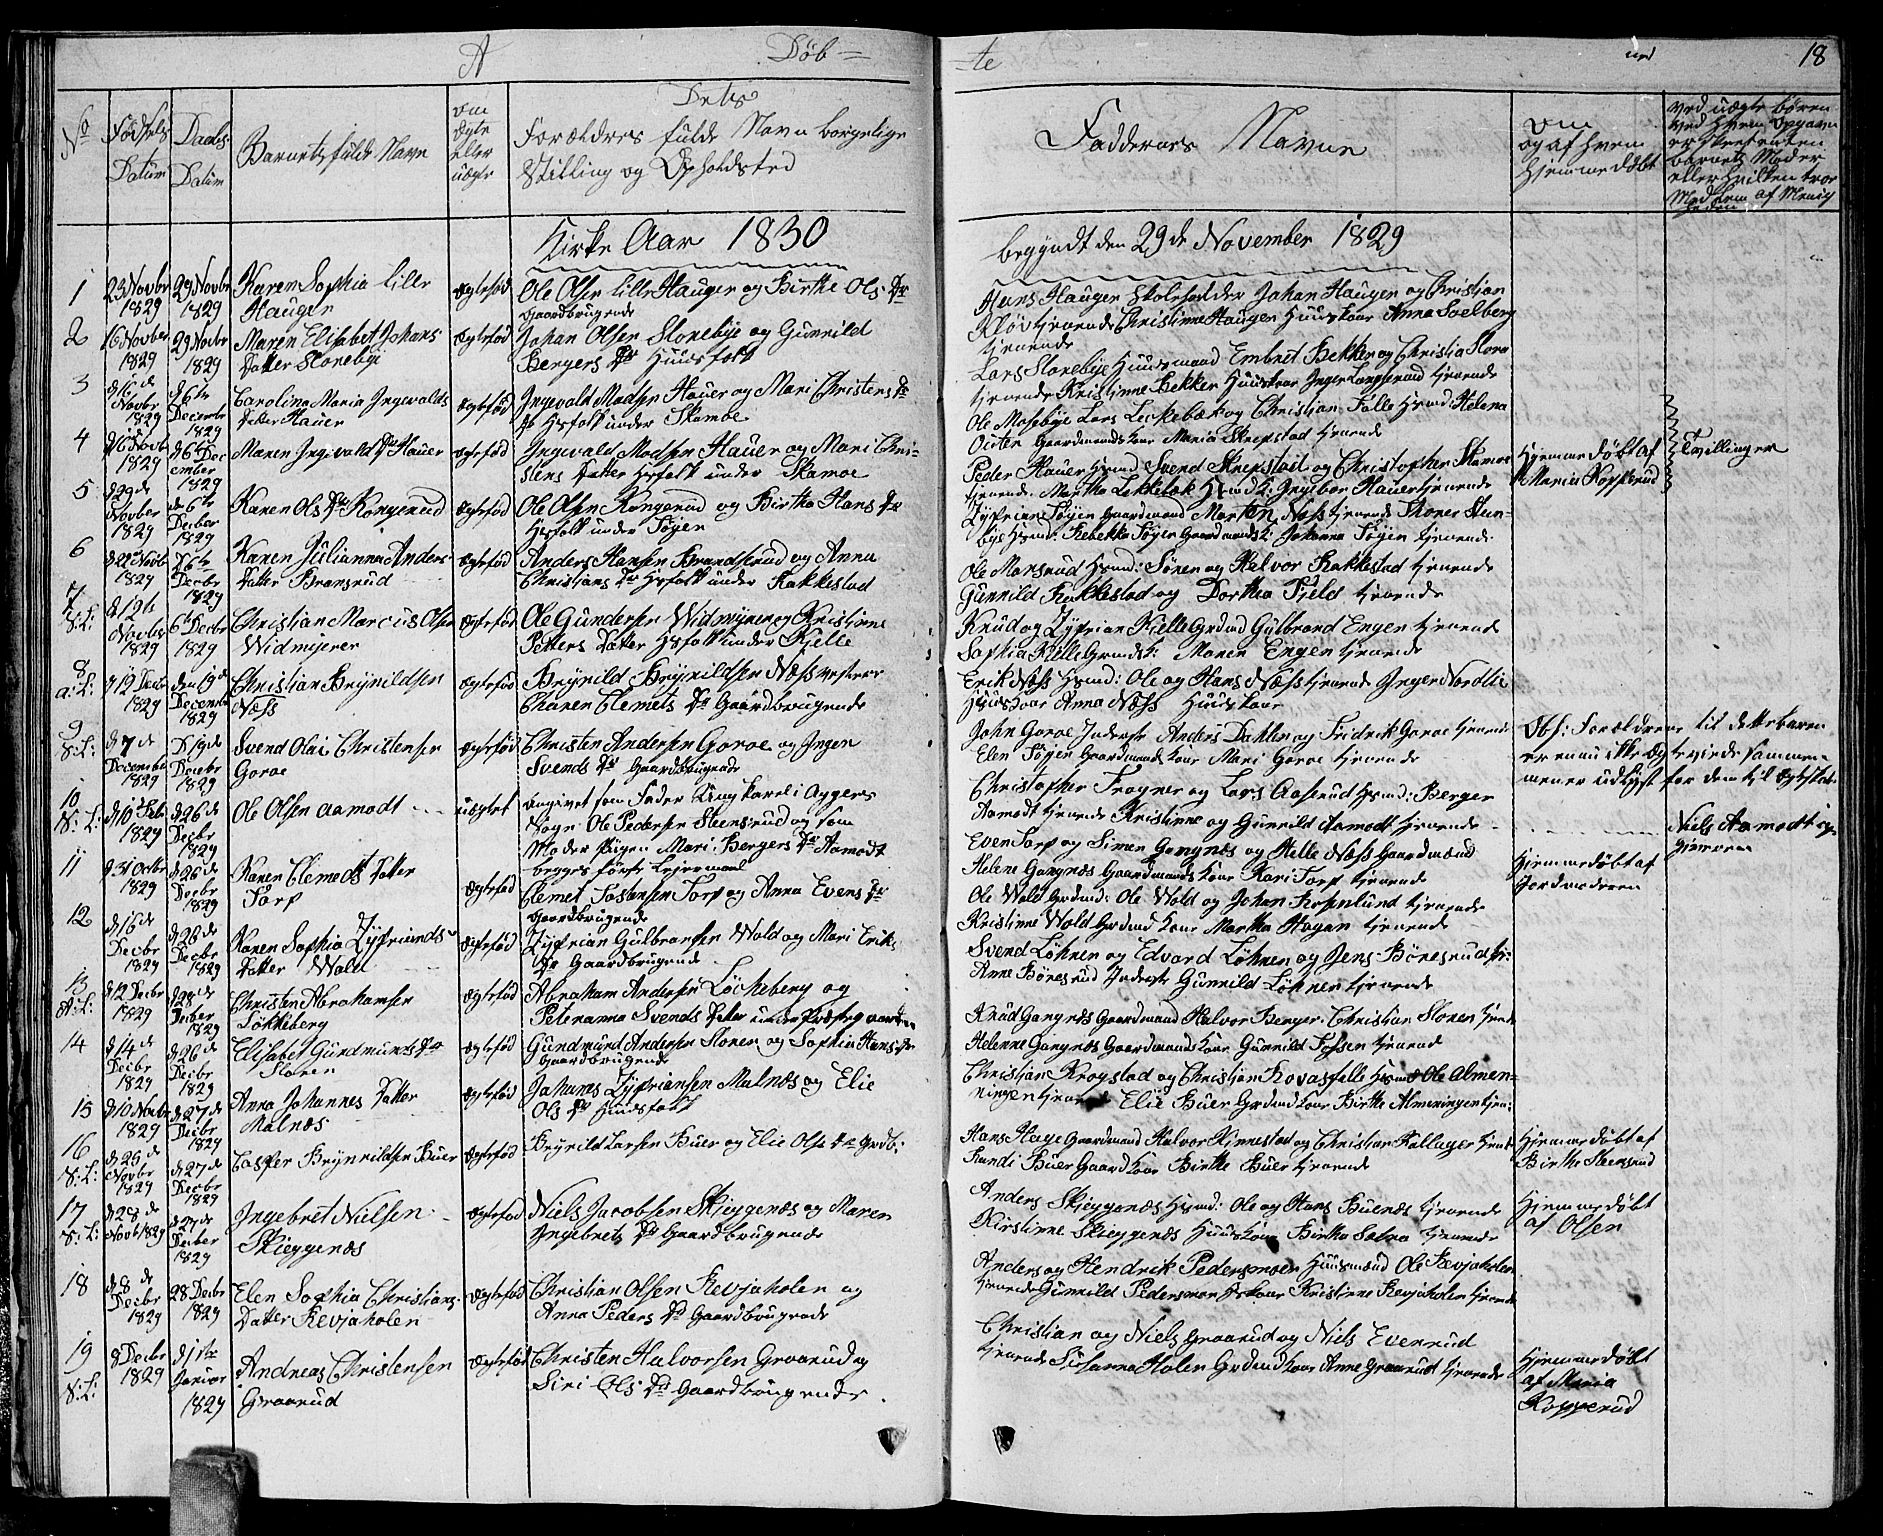 A Døb=
=te
18
No
Fødsels Datum
Daabs Datum
Barnets fulde Navn
om ægte eller uægte
Dets Forældres fulde Navn borgelige Stilling og Opholdsted
Faddernes Navne
om og af hvem Hjemmedøbt
Kirke Aar 1830
begyndt den 29de November 1829
1 23 Novbr 1829 29 Novbr 1829 Karen Sophia Lille Haugen ægtefød Ole Olsen Lille Hauger og Birthe Ols Dr
Gaardbrugende
Hans Hauger Skoleholder Johan Hauger og Christian
tjenende Christinne Haugen Huuskone Anna Soelberg
tjenende
2 16 Novber 1829 29 Novbr 1829 Maren Elisabet Johans Datter Slorebye ægtefød Johan Olsen Slorebye og Gunnild
Bergers Dr Huusfolk
Lars Slorebye Huusmand Embret Bekker og Christian Slora
tjenende Kristinne Bekker Huuskone Inger Langserud tjenende
3 Novbr 1829 d 6te Decembr 1829 Carolina Maria Ingevalds Datter Hauer ægtefød Ingevald Madsen Hauer og Mari Christens Dr
Hsfolk under Skambe
Ole Mosebye Lars Leckebæk og Christian Fälle Hsmd: Helena
Gaardmandskone Maria Skrepstad tjenende
4 d 16 Novb 1829 d 6te December 1829 Maren Ingevalds Dr Hauer ægtefød Ingevald Madsen Hauer og Mari Christens
Datter Hsfolk under Skamoe
Peder Hauer Hsmd Svend Skrepstad og Christopher Skamoe
tjenende Martha Lekkebæk Hsmd K: Ingebor Hauer tjenende
Hjemmedøbt af Maria Kopperud
Tvillinger
5 d 29 de Novber 1829 d 6te Decbr 1829 Karen Ols Dr Kongerud ægtefød Ole Olsen Kongerud og Birthe Hans Dr
Hsfolk under Føyen
Zyprian Føyen Gaardmand Morten Næss tjenende
bye Hsmd: Rebekka Føyen Gaardmandsk: Johanna Føyen tjenende
6 d 22 Novb 1829 d 6te Decbr 1829 Karen Julianna Anders Datter Bransrud ægtefød Anders Hansen Brandsrud og Anna
Christians Dr Hsfolk under Rakkestad
Ole Mansrud Hsmd: Sören og Halvor Rakkestad tjenende
Gunnild Rakkestad og Dorthea Fjeld tjenende
7 S: L: d 12te Novbr 1829 6te Decbr 1829 Christian Marcus Olsen Widmyrer ægtefød Ole Gundersen Widmyrer og Kristinne
Petters Datter Hsfolk under Kjelle
Knud og Zyprian Kielle Grdmd Gulbrand Engen tjenende
Sophia Kielle Grmdsk: Maren Engen tjenende
8 a: L: d 12 Decbr 1829 den 19 de December 1829 Christian Brynildsen Næss ægtefød Brynild Brynildsen Næss vestere
Charen Clemets Dr Gaardbrugende
Erik Næss Hsmd: Ole og Hans Næss tjenende Inger Nordlie
Huuskone Anna Næss Huuskone
9 S: L: d 7 de December 1829 D 19 de Decbr 1829 Svend Olai Christensen Goroe ægtefød Christen Andersen Goroe og Ingen
Svends Dr Gaardbrugende
John Goroe Inderst Anders Dahlen og Fridrik Goroe tjenende
Elen Føyen Gaardmandskone Mari Goroe tjenende
Obs: Forældrene til dette barn
er ennu ikke ægteviede sammen
men er udlyst for dem til Ægteskab
10 S: L: d 10 Debr 1829 d 26 de Decbr 1829 Ole Olsen Aamodt uægtet angivet som Fader Ungkarl i Aggers
Sogn Ole Pedersen Steensrud og som
Moder Pigen Mari Bergers Dr Aamodt
begges første Leiermaal
Christopher Trogner og Lars Aaserud Hsmd: Berger
Aamodt tjenende Kristinne og Gunnild Aamodt tjenende
Niels Aamodt
11 d 31 Octbr 1829 d 26 de Decbr 1829 Karen Clemeds Datter Torp ægtefød Clemet Tostensen Torp og Anna Evens Dr
Gaardbrugende
Even Torp og Simen Gangnæs og Helle Næss Gaardmænd
Helene Gangnæs Gaardmands kone Kari Torp tjenende
Hjemmedøbt af Jordmoderen
12 d 16 de Decbr 1829 d 26 de Decbr 1829 Karen Sophia Zypriands Datter Wold ægtefød Zyprian Gulbransen Wold og Mari Eriks
Dr Gaardbrugende
Ole Wold Grdmd: Ole Wold og Johan Rosenlund tjenende
Kristinne Wold Grdmd kone Martha Hagan tjenende
13 A: L: d 12 Decbr 1829 d 28 de Decber 1829 Christen Abrahamsen Løkkeberg ægtefød Abraham Andersen Løckeberg og
Peteranna Svends Datter under Præstegaarden
Svend Løhren og Edvard Løhren og Jens Børesrud
Anne Børesrud Inderste Gunnild Løhren tjenende
14 d 14 de Decbr 1829 d 26 de Decbr 1829 Elisabet Gundmunds Dr Sloren ægtefød Gundmund Andersen Sloren og Sophia Hans Dr
Gaardbrugende
Knud Gangnæs Gaardmand Halvor Berger Christian Sloren tjende
Helenne Gangnæs Gaardmands kone Gunnild Fossen tjenende
15 d 10 Novbr 1829 d 27 de Decbr 1829 Anna Johannes Datter Malnæs ægtefød Johanes Zypriansen Malnæs og Elie
Ols Dr Huusfolk
Christian Krogstad og Christian Kovasfelle Hsmd Ole Almenningen
tjenende Elie Buer Grdmd kone Birthe Almeningen tjen:
16 S: L: d 25 de Novbr 1829 d 27 de Decbr 1829 Casper Brynnildsen Buer ægtefød Brynild Larsen Buer og Elie Ols Dr Grdb:
Hans Hage Gaardmand Halvor Kinnestad og Christian Kallager tjende
Randi Buer Gaard kone Birthe Buer tjenende
Hjemmedøbt af Birthe Steensrud
17 S: L: d 28 de Novb 1829 d 27 de Decber 1829 Ingebret Nielsen Skieggenæs ægtefød Niels Jacobsen Skjeggenæs og Maren
Ingebrets Dr Gaardbrugende
Anders Skjeggenæs Hsmd: Ole og Hans Buenæs tjenende
Kirstinne Skjeggenæs Huuskone Birthe tjenende
Hjemmedøbt af Olsen
18 d 8 de Decbr 1829 28 Decbr 1829 Elen Sophia Christians Datter Revjaholen ægtefød Christian Olsen Revjaholen og
Anna Peders Dr Gaardbrugende
Anders og Hendrik Pedersmoen Huusmænd Ole Revjaholen
tjenende Gunnild Pedersmoen Hskone Kristinne Revjaholen tjenende
19 S: L: 9 Decbr 1829 d 1te Januar 1829 Andreas Christensen Graarud ægtefød Christen Halvorsen Graarud og
Siri Ols Dr Gaardbrugende
Christian og Niels Graarud og Niels Evenrud
tjenende Susanna Holen Grdmd kone Anne Graarud tjenende
Hjemmedøbt af Maria Kopperud